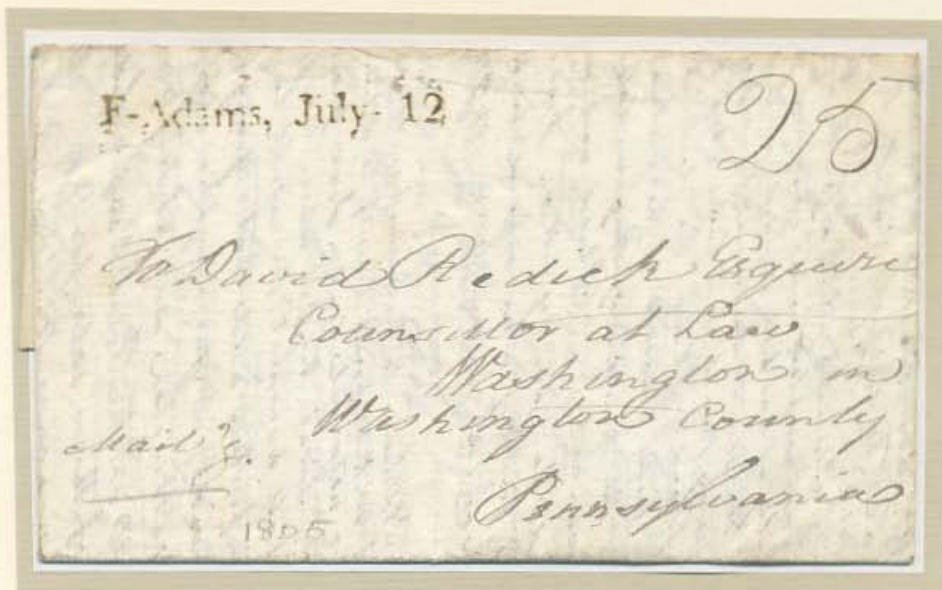 F-Adams, July- 12
25
To David Redick Esquire
Counsellor at Law
Washington in
Washington County
Pennsylvania
1805